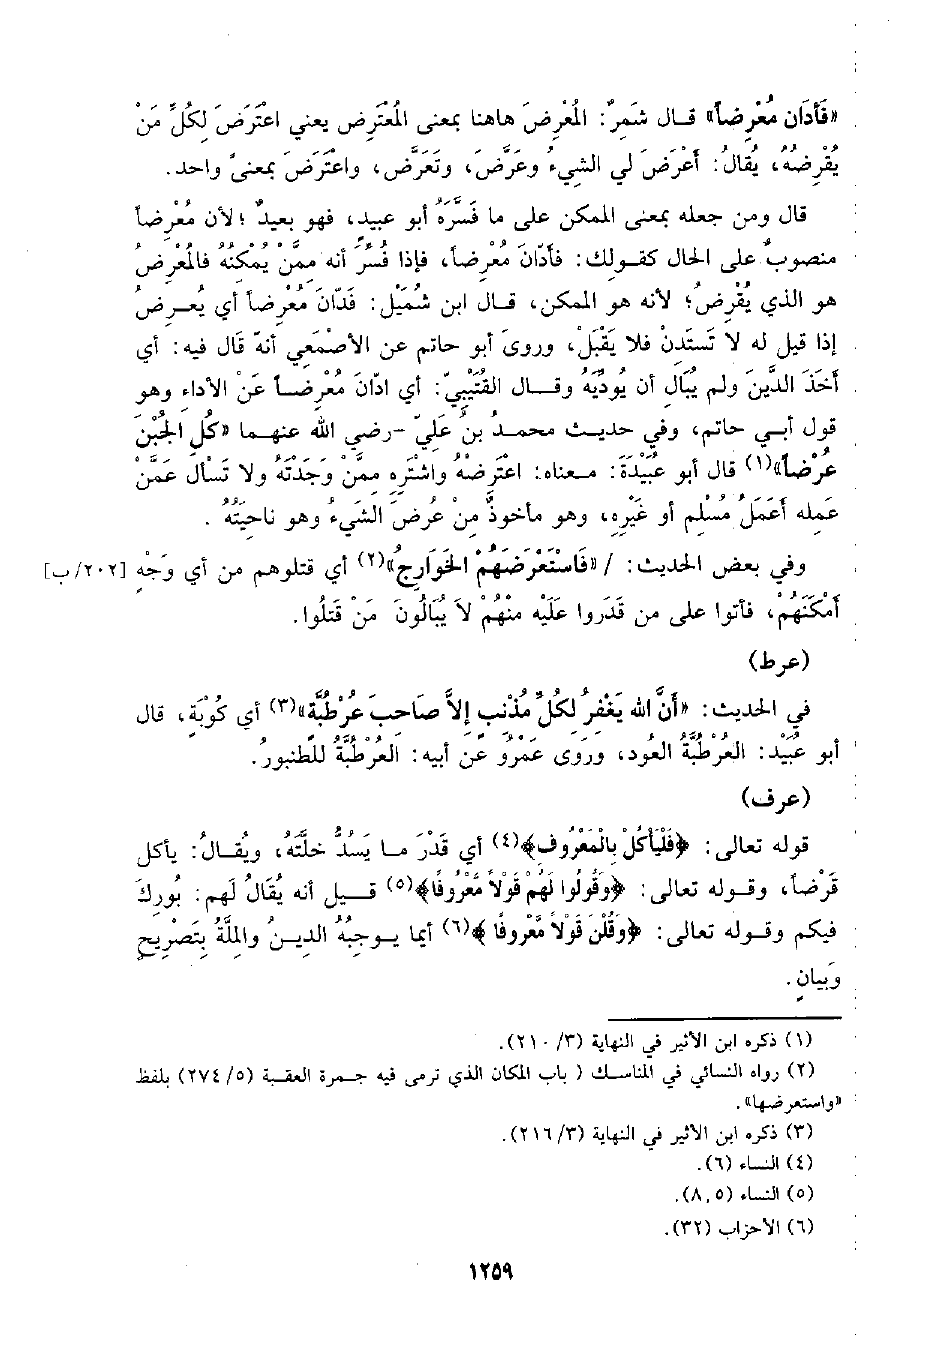 «فَأَدَان مُعْرِضاً» قال شَمِرٌ: المُعْرِضَ هاهنا بمعنى المُعْتَرِض يعني اعْتَرَضَ لِكُلِّ مَنْ
يُقْرِضُهُ، يُقَالُ: أَعْرَضَ لي الشيءُ وعَرَّضَ، وتَعَرَّض، واعْتَرَضَ بمعنىً واحد.
قال ومن جعله بمعنى الممكن على ما فَسَّرَهُ أبو عبيد، فهو بعيدٌ؛ لأن مُعْرِضاً
منصوبٌ على الحال كقولك: فأدّانَ مُعْرِضاً، فإذا فُسِّرَ أنه ممَّنْ يُمْكِنُهُ فالمُعْرِضُ
هو الذي يُقْرِضُ؛ لأنه هو الممكن، قال ابن شُمَيْل: فَدّانَ مُعْرِضاً أي يُعرِضُ
إذا قيل له لا تَسْتَدِنْ فلا يَقْبَلُ، وروىَ أبو حاتم عن الأصْمَعي أنهّ قال فيه: أي
أَخَذَ الدَّينَ ولم يُبَال أن يُودِّيَهُ وقال القُتَيْبِيّ: أي ادّانَ مُعْرِضاً عَنْ الأداء وهو
قول أبي حاتم، وفي حديث محمد بنُ عَلِيّ -رضي الله عنهما «كُلِ الجُبْنَ
عُرْضاً»(١) قال أبو عُبَيْدَةَ: معناه: اعْتَرِضْهُ واشْتَرِهِ ممَّنْ وَجَدْتَهُ ولا تَسْأل عَمَّنْ
عَمِله أَعَمَلُ مُسْلِمٍ أو غَيْرِهِ، وهو مأخوذٌ مِنْ عُرضَ الشَيءُ وهو ناحِيَتُهُ .
وفي بعض الحديث: / «فَاسْتَعْرَضَهُمْ الخَوَارِجُ»(٢) أي قتلوهم من أي وَجْهٍ [٢٠٢/ب]
أَمْكَنَهُمْ، فأتوا على من قَدَروا عَلَيْه مِنْهُمْ لاَ يُبَالُونَ مَنْ قَتَلُوا.
(عرط)
في الحديث: «أَنَّ الله يَغْفِرُ لكُلِّ مُذْنِبٍ إلاَّ صَاحِبَ عُرْطُبَّة»(٣) أي كُوْبَةٍ، قال
أبو عُبَيْد: العُرْطُبَّةُ العُود، ورَوى عَمْروٌ عن أبيه: العُرْطُبَّةُ للطُنبورُ.
(عرف)
قوله تعالى: ﴿فَلْيَأْكُلْ بِالْمَعْرُوف﴾(٤) أي قَدْرَ ما يَسُدُّ خلَّتَهُ، ويُقالُ: يأكل
قَرْضاً، وقوله تعالى: ﴿وَقُولُوا لَهُمْ قَوْلاً مَّعْرُوفًا﴾(٥) قيل أنه يُقَالُ لَهم: بُورِكَ
فيكم وقوله تعالى: ﴿وَقُلْنَ قَوْلاً مَّعْرُوفًا ﴾(٦) أيما يوجِبُهُ الدينُ والمِلَّةُ بِتَصْرِيحٍ
وَبَيانٍ.
(١) ذكره ابن الأثير في النهاية (٣/ ٢١٠).
(٢) رواه النسائي في المناسك ( باب المكان الذي ترمى فيه جمرة العقبة (٥/ ٢٧٤) بلفظ
«واستعرضها».
(٣) ذكره ابن الأثير في النهاية (٣/ ٢١٦).
(٤) النساء (٦).
(٥) النساء (٥ ,٨).
(٦) الأحزاب (٣٢).
١٢٥٩